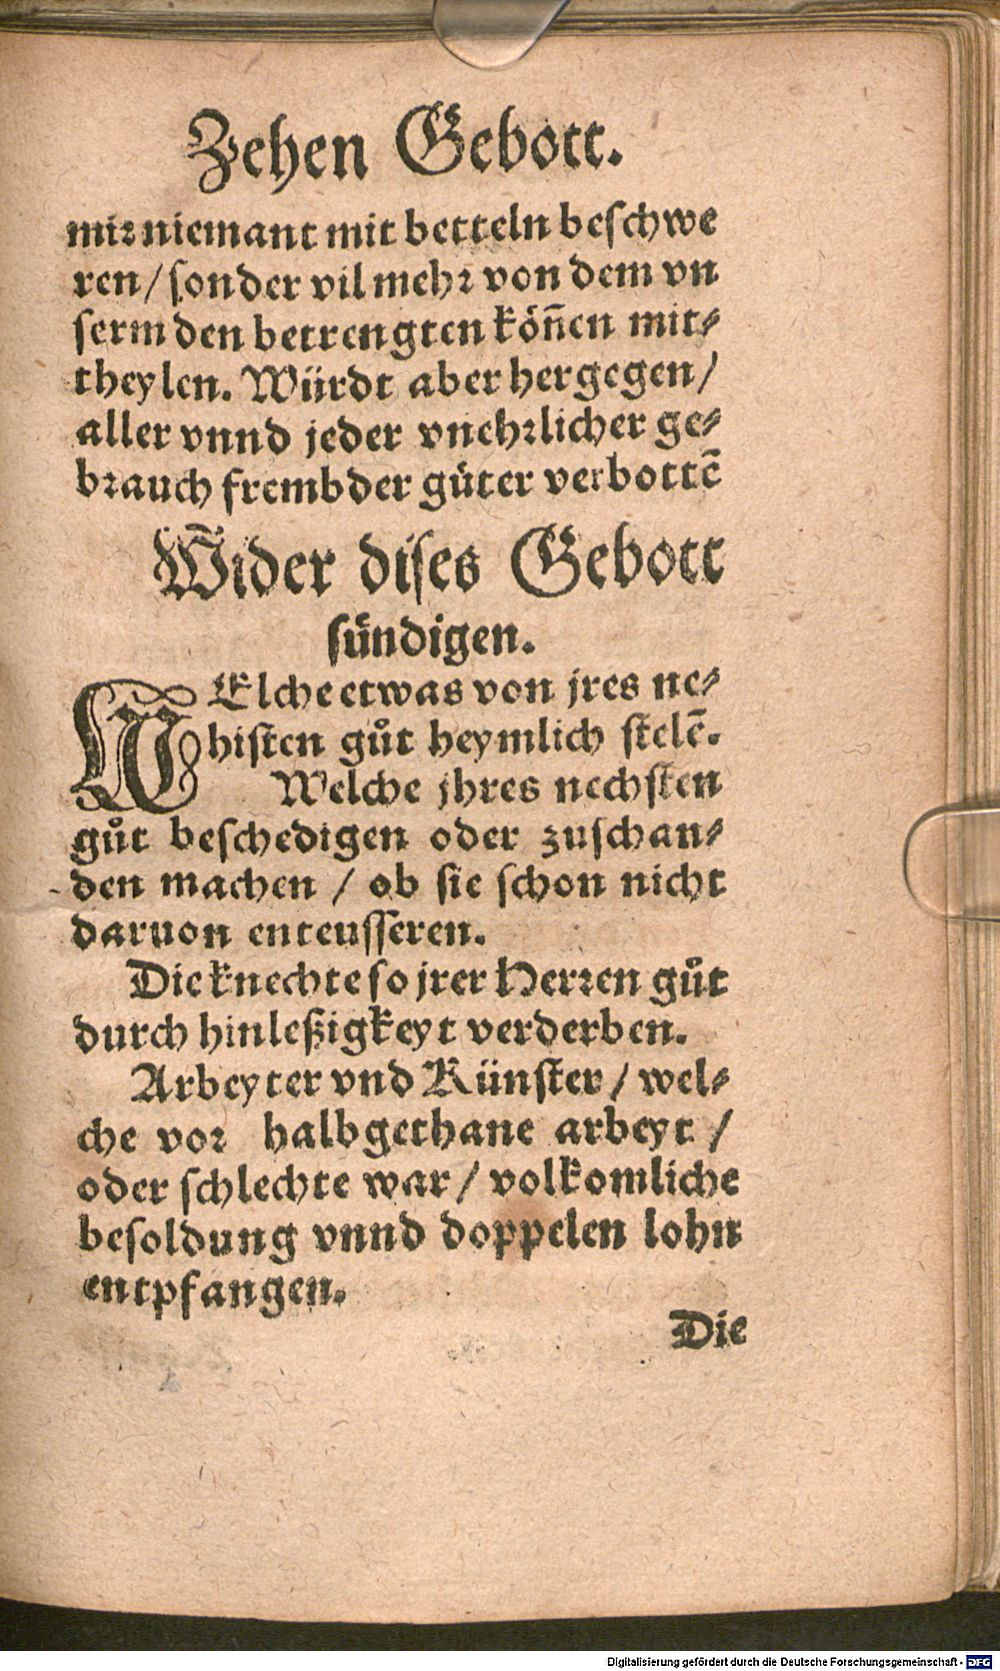 Zehen Gebott.
mir niemant mit betteln beschwe
ren / sonder vil mehr von dem vn
serm den betrengten köñen mit⸗
theylen. Würdt aber hergegen /
aller vnnd jeder vnehrlicher ge⸗
brauch frembder güter verbottē
Wider dises Gebott
sündigen.
WElche etwas von jres ne⸗
histen gůt heymlich stelē.
Welche jhres nechsten
gůt beschedigen oder zuschan⸗
den machen / ob sie schon nicht
daruon enteusseren.
Die knechte so jrer Herren gůt
durch hinleßigkeyt verderben.
Arbeyter vnd Künster / wel⸗
che vor halbgethane arbeyt /
oder schlechte war / volkomliche
besoldung vnnd doppelen lohn
entpfangen.
Die
Digitalisierung gefördert durch die Deutsche Forschungsgemeinschaft - DFG